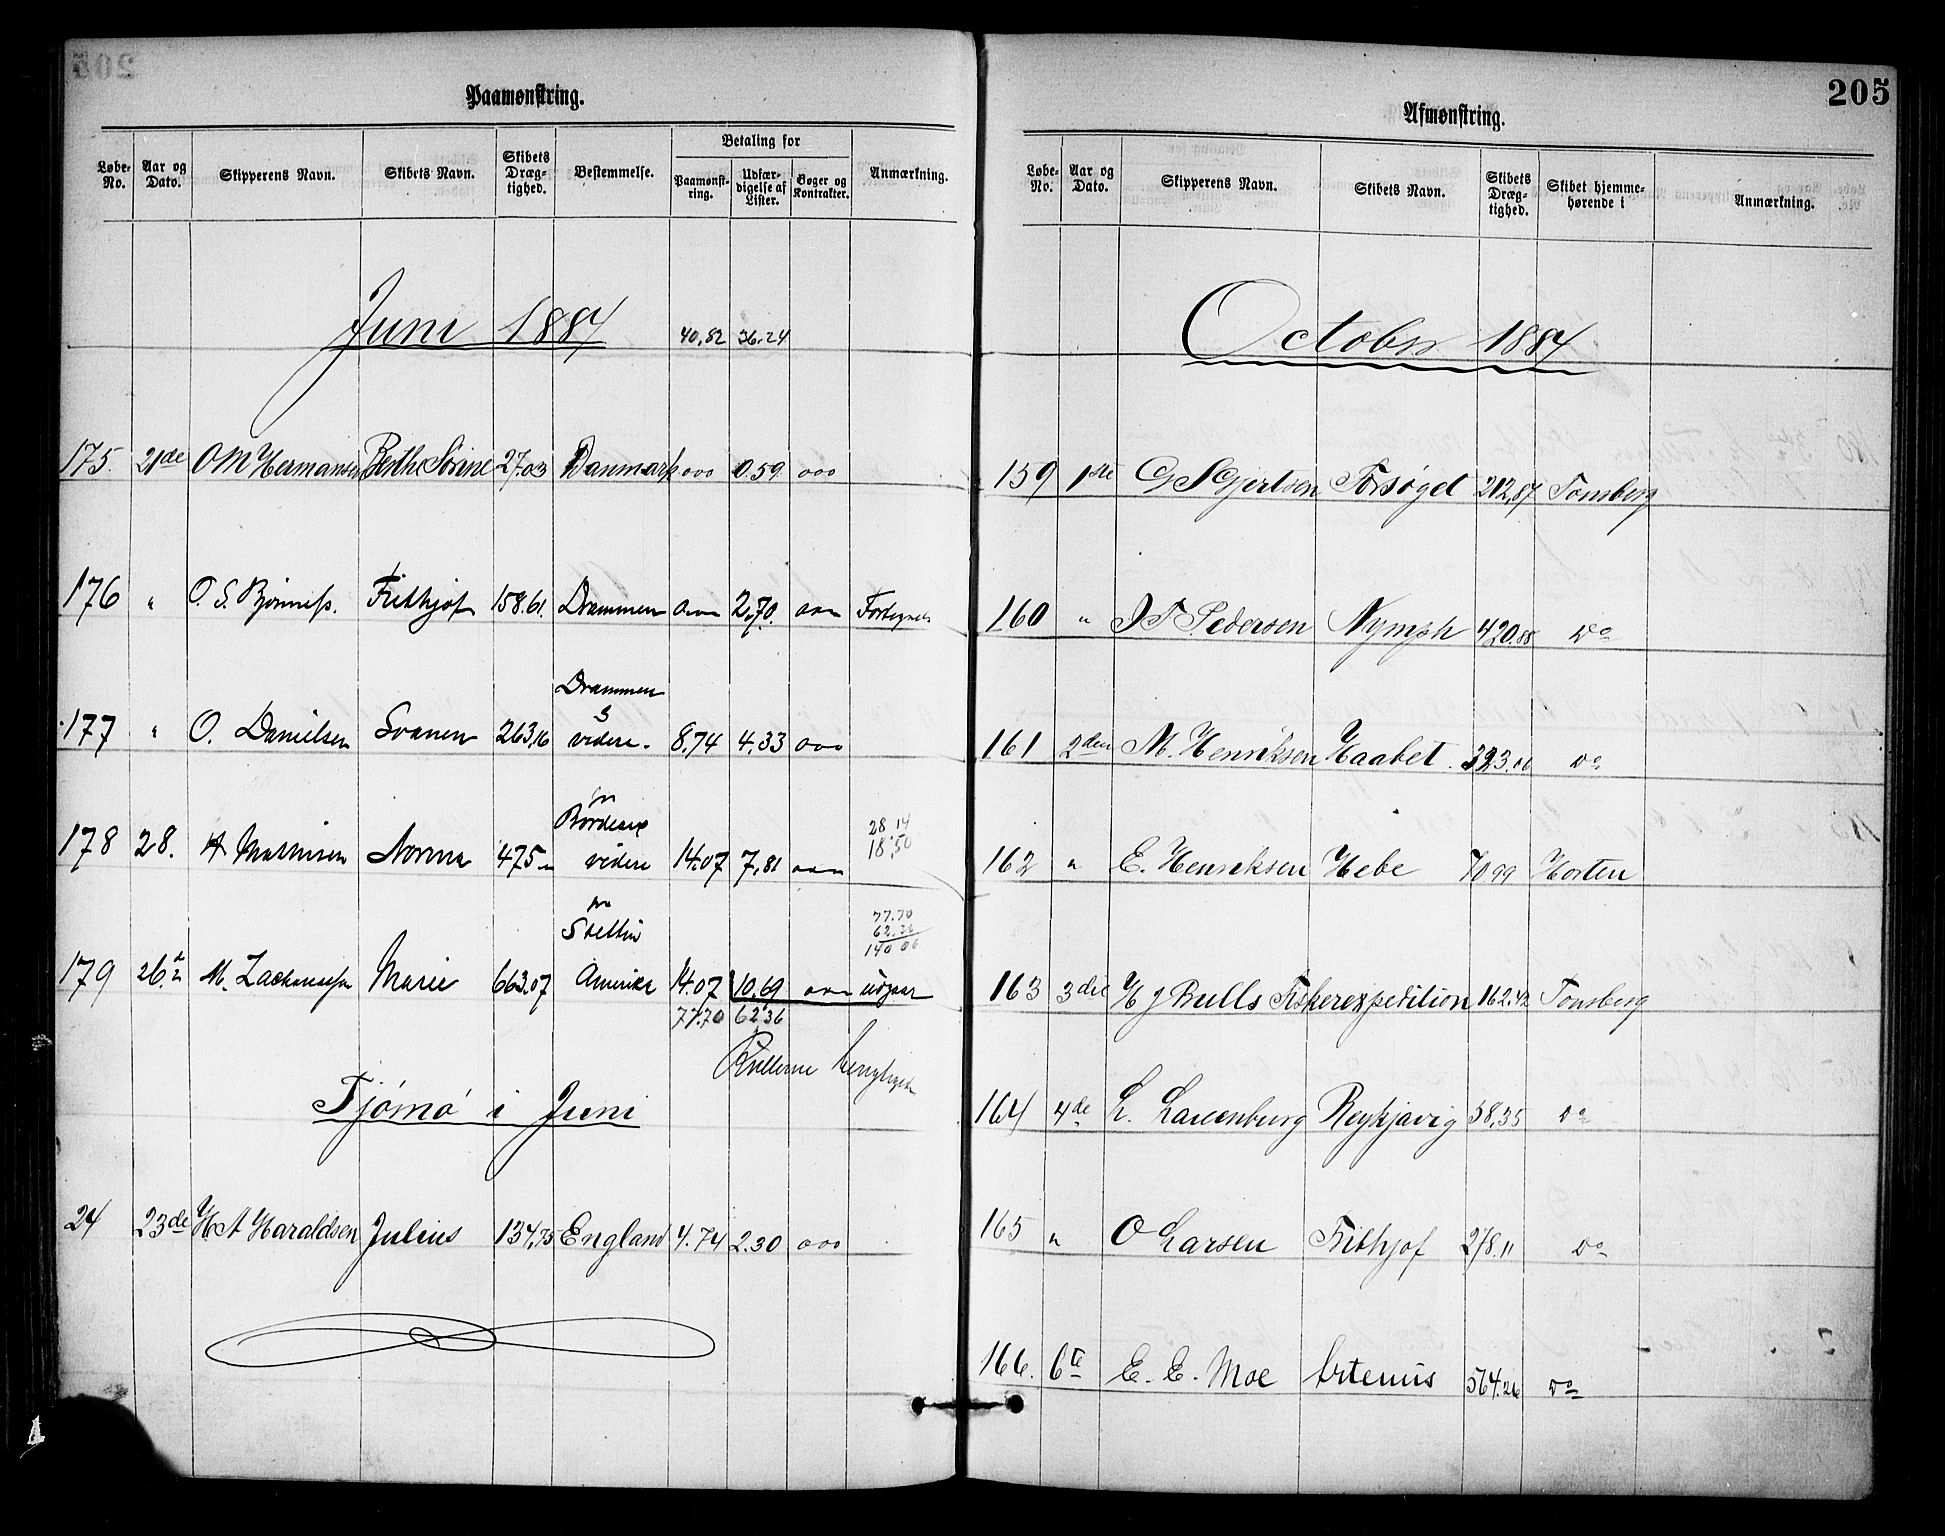 Paamønstring.
Løbe-No. Aar og Dato. Skipperens Navn. Skibets Navn. Skibets Dræg-tighed. Bestemmelse. Betaling for Paamønst-ring. Udfær-digelse af Lister. Bøger og Kontrakter. Anmærkning.
Juni 1884 40,82 36.24
175. 21de O M Hermansen Berthe Sorine 27.03 Danmark ooo 0.59 ooo
176 " O. S. Bjørness. Frithjof 158.61. Drammen 2,70.
Drammen
177 " O. Danielsen Svanen 263,16 & videre. 8,74 4.33 ooo
pr Bordeaux 28 14
178 28. Mathisen Norma 475 videre 14.07 7,81 18,50
pr Stettin 77.70
62.36
140 06
179 26 M. Zachariassen Marie 663.07 Amerika 14.07 10.69 udgaar
77.70 62.36
Rullerne
Tjømø i Juni
24 23de H. A Haraldsen Julius 134,75 England 4.74 2.30 ooo
205
Afmønstring.
Løbe-No. Aar og Dato. Skipperens Navn. Skibets Navn. Skibets Dræg-tighed. Skibet hjemme-hørende i Anmærkning.
October 1884
159 1ste G S Gjertsen Forsøget 212,87 Tønsberg
160 " J F Pedersen Nymph 420.88 Do
161 2den M. Henriksen Haabet. 323.06 Do
162 " E. Henriksen Hebe 70.99 Horten
163 3die H J Bulls Fiskerexpedition 162.42 Tønsberg
164 4de L. Lauenburg Reykjavig 58,35 Do
165 " O Larsen Frithjof 278.11 Do
166. 6te E. E. Moe Artemis 564.26 Do